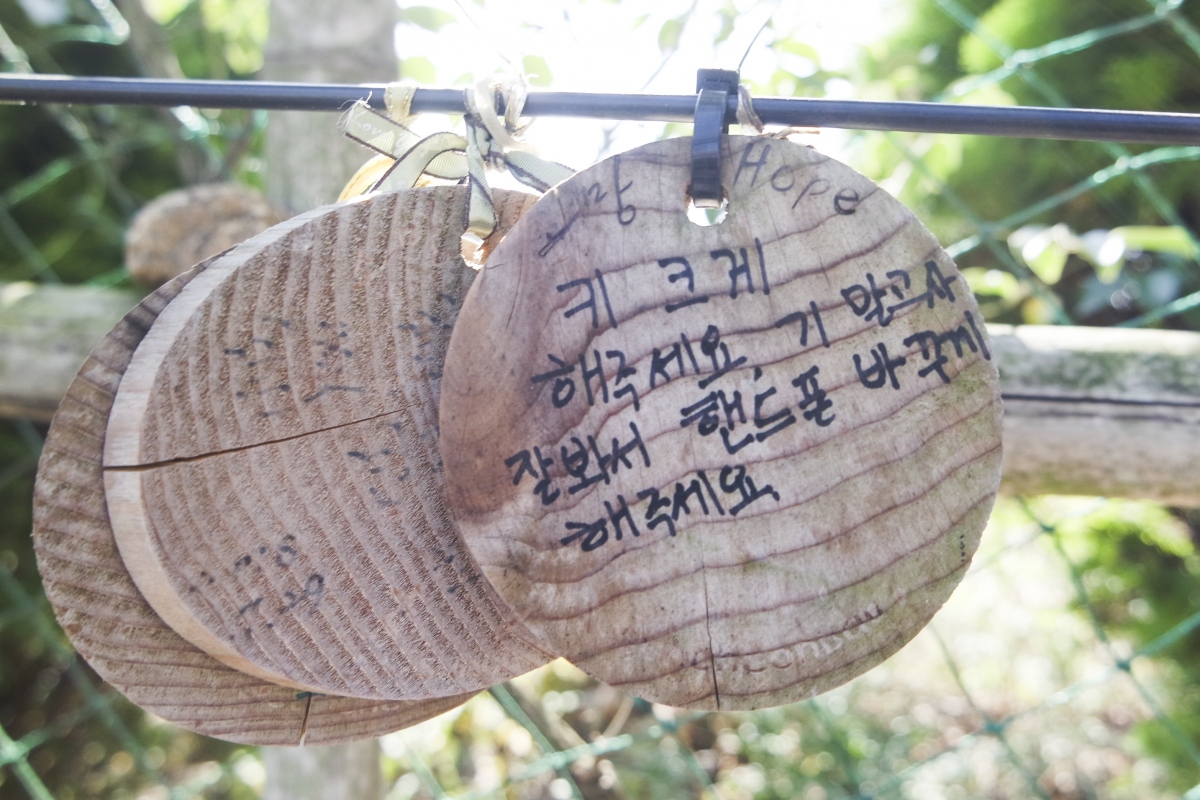 소망 Hope
키 크게
해주세요, 기 말고사
잘봐서 핸드폰 바꾸게
해주세요